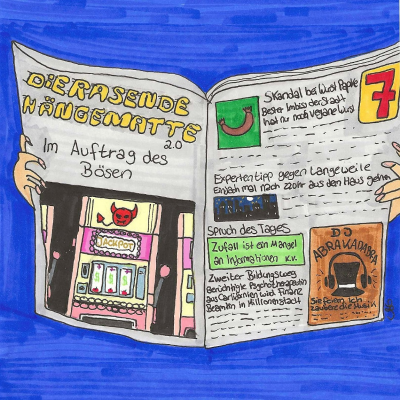 DiE RASENDE
HÄNGEMATTE
2.0
Im Auftrag des
Bösen
JACKPOT
Skandal bei Wurst Papke
Bester Imbiss der Stadt
hat nur noch vegane Wurst
7
Expertentipp gegen Langeweile
Einfach mal nach 22 Uhr aus dem Haus gehen
Spruch des Tages
Zufall ist ein Mangel
an Informationen K.K.
Zweiter Bildungsweg
Berüchtigte Psychotherapeutin
aus Carlifornien wird Finanz
Beamtin in Millionenstadt
DJ
ABRAKADABRA
Sie feiern, Ich
zaubere die Musik